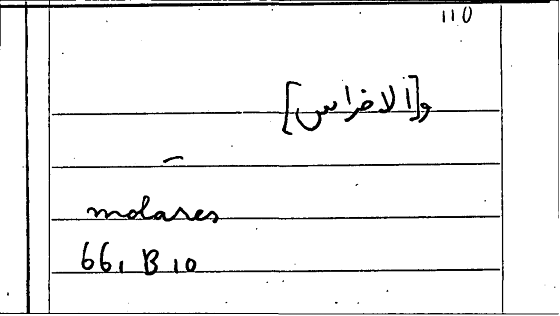 110
و[الاضراس]
–
molares
66, B 10